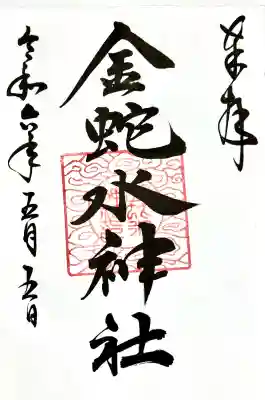 奉拝
金蛇水神社
令和六年五月五日